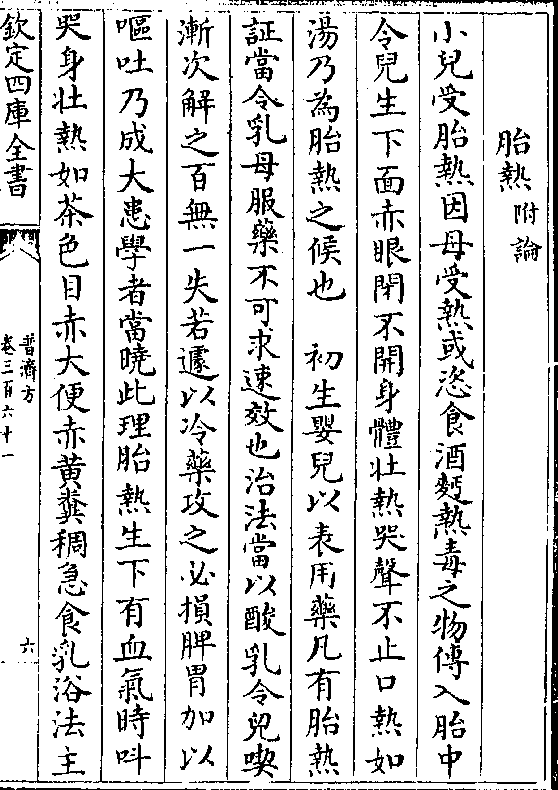 胎熱附論
小兒受胎熱因母受熱或恣食酒麫熱毒之物傳入胎中
令兒生下面赤眼閉不開身體壯熱哭聲不止口熱如
湯乃為胎熱之候也　初生嬰兒以表用藥凡有胎熱
証當令乳母服藥不可求速效也治法當以酸乳令兒喫
漸次解之百無一失若遽以冷藥攻之必損脾胃加以
嘔吐乃成大患學者當曉此理胎熱生下有血氣時呌
哭身壯熱如茶色目赤大便赤黄糞稠急食乳浴法主
欽定四庫全書
普濟方
卷三百六十一
六